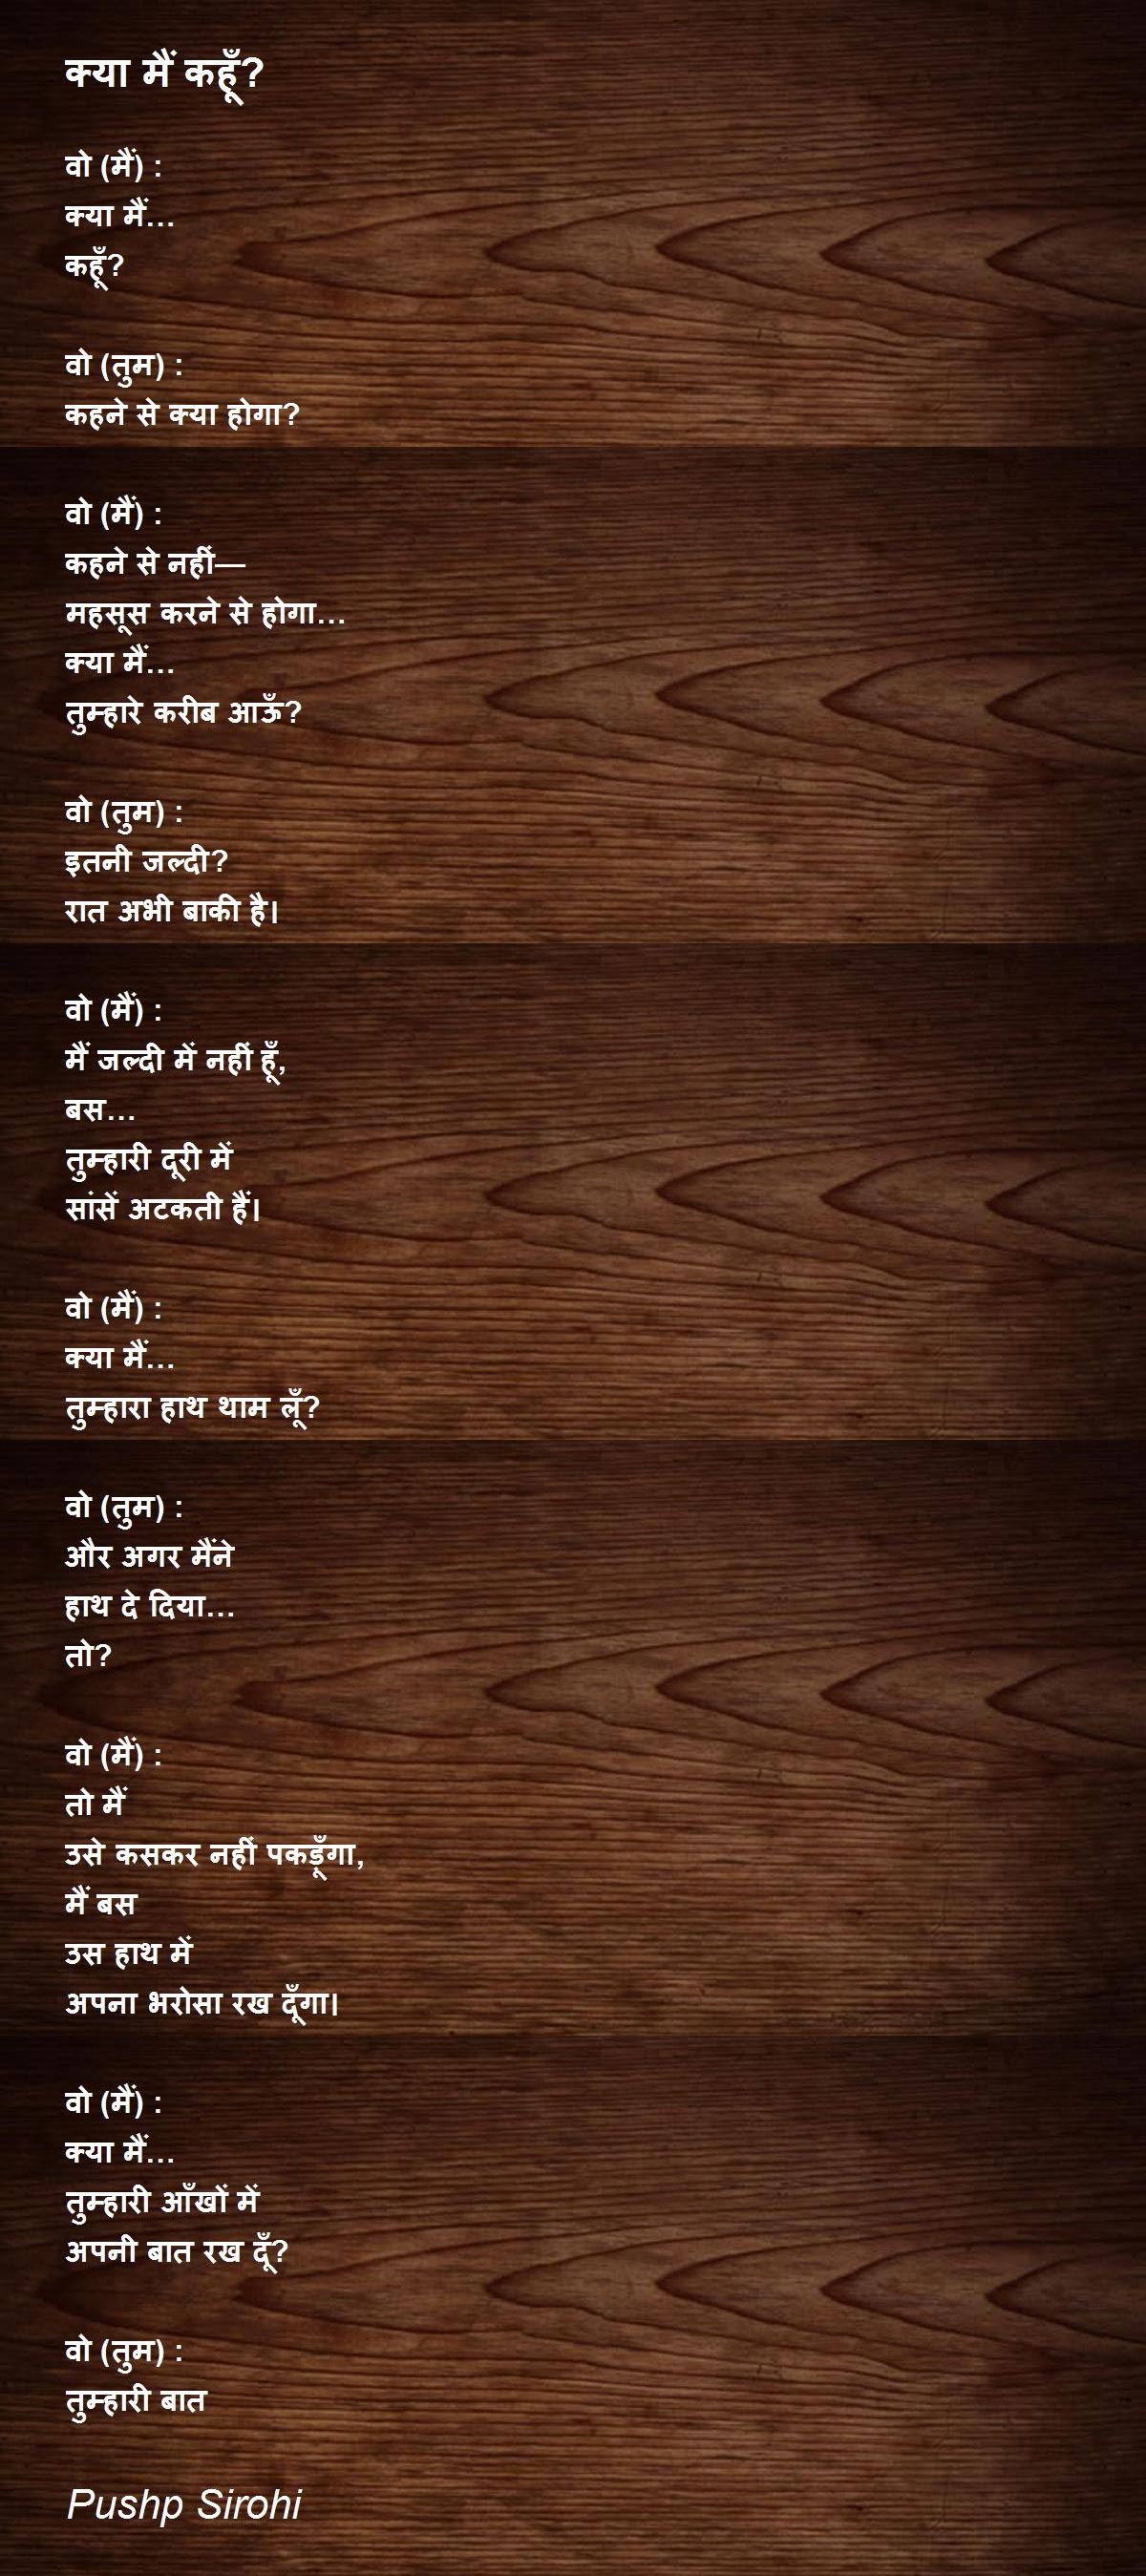 क्या मैं कहूँ?
वो (मैं) :
क्या मैं...
कहूँ?
वो (तुम) :
कहने से क्या होगा?
वो (मैं) :
कहने से नहीं—
महसूस करने से होगा...
क्या मैं...
तुम्हारे करीब आऊँ?
वो (तुम) :
इतनी जल्दी?
रात अभी बाकी है।
वो (मैं) :
मैं जल्दी में नहीं हूँ,
बस...
तुम्हारी दूरी में
सांसें अटकती हैं।
वो (मैं) :
क्या मैं...
तुम्हारा हाथ थाम लूँ?
वो (तुम) :
और अगर मैंने
हाथ दे दिया...
तो?
वो (मैं) :
तो मैं
उसे कसकर नहीं पकड़ूँगा,
मैं बस
उस हाथ में
अपना भरोसा रख दूँगा।
वो (मैं) :
क्या मैं...
तुम्हारी आँखों में
अपनी बात रख दूँ?
वो (तुम) :
तुम्हारी बात
Pushp Sirohi